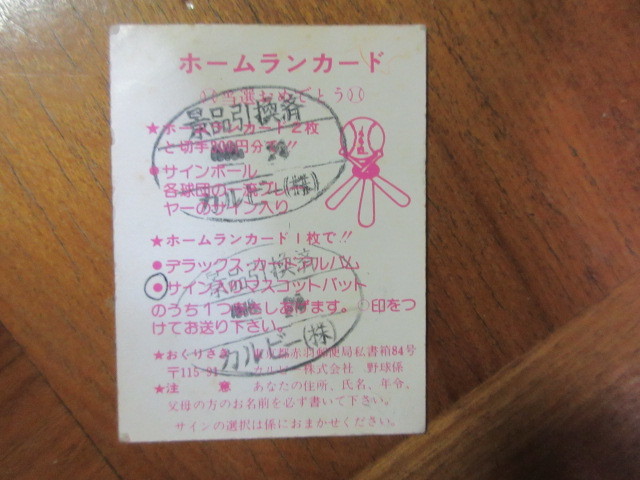 ホームランカード
当選おめでとう
★ホームランカード2枚
と切手300円分で!!
●サインボール
各球団の
ヤーのサイン入り
景品引換済
カルビー(株)
★ホームランカード1枚で!!
●デラックス・カードアルバム
●サイン入りマスコットバット
のうち1つ さしあげます。○印をつ
けてお送り下さい。
景品引換済
カルビー(株)
★おくりさき 東京都赤羽郵便局私書箱84号
〒115-91 カルビー株式会社 野球係
★注 意 あなたの住所、氏名、年令、
父母の方のお名前を必ず書いて下さい。
サインの選択は係におまかせください。